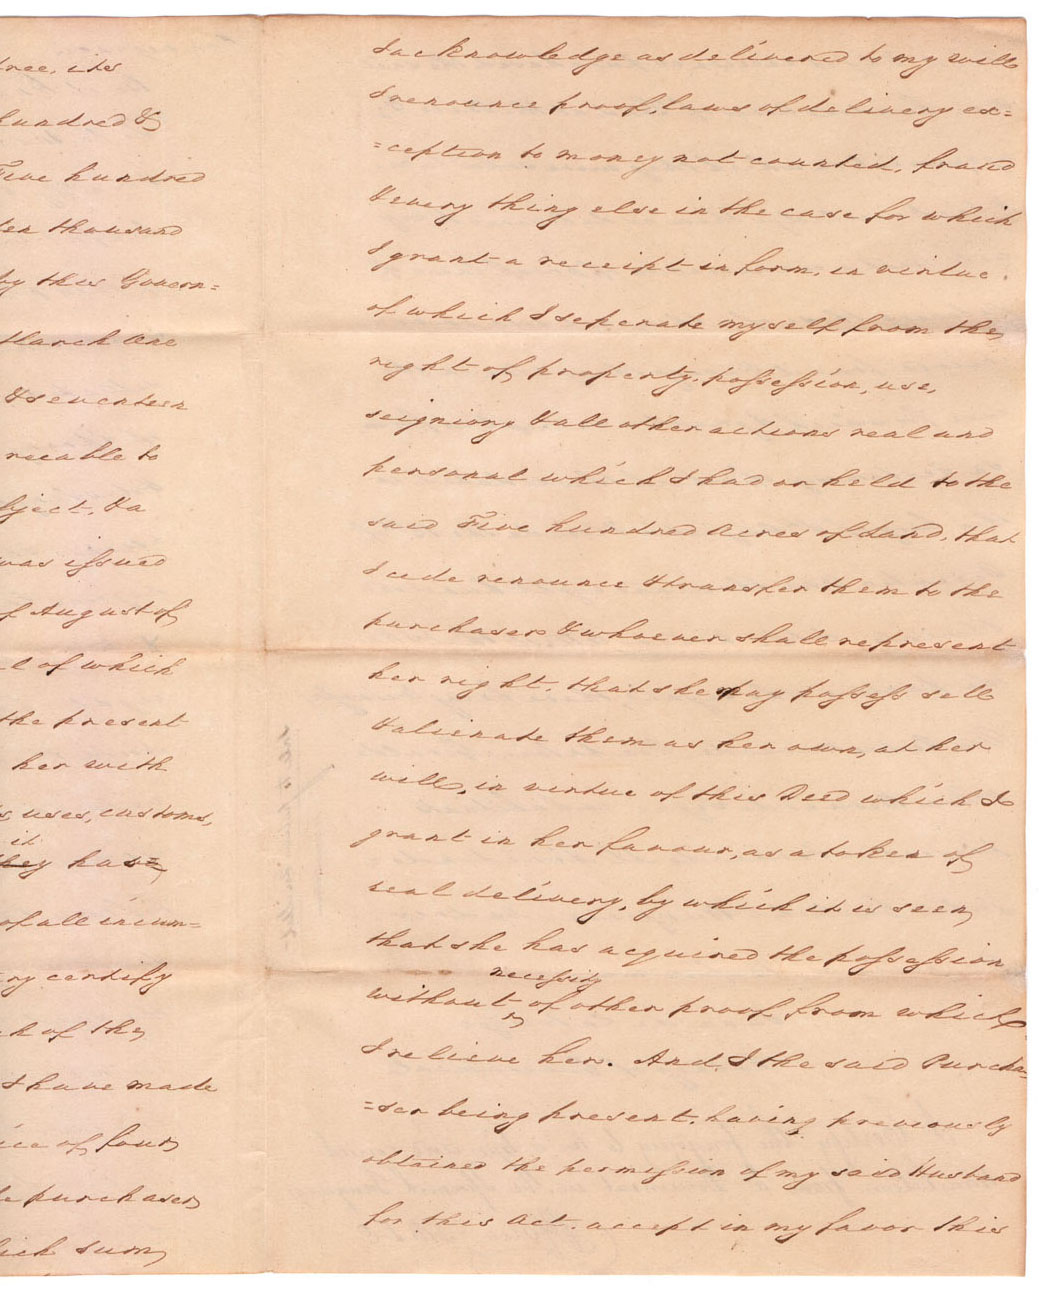 tree, its
hundred &
Five hundred
ten thousand
by this Govern=
March One
& seventeen
reeable to
bject, & a
was issued
f August of
l of which
the present
her with
s, uses, customs,
it
they has=
of all incum=
ry certify
k of the
I have made
ice of four
e purchaser
hich sum
I acknowledge as delivered to my will
I renounce proof, laws of delivery ex=
=ception to money not counted, fraud
& every thing else in the case for which
I grant a receipt in form, in virtue
of which I seperate myself from the
right of property, possession, use,
seigniory & all other actions real and
personal which I had or held to the
said Five hundred Acres of Land, that
I cede renounce & transfer them to the
purchaser & whoever shall represent
her right, that she may possess sell
& alienate them as her own, at her
will, in virtue of this Deed which I
grant in her favour, as a token of
real delivery, by which it is seen
that she has acquired the possession
necessity
without ^ of other proof from which
I relieve her. And, I the said Purcha=
=ser being present, having previously
obtained the permission of my said Husband
for this Act, accept in my favor this